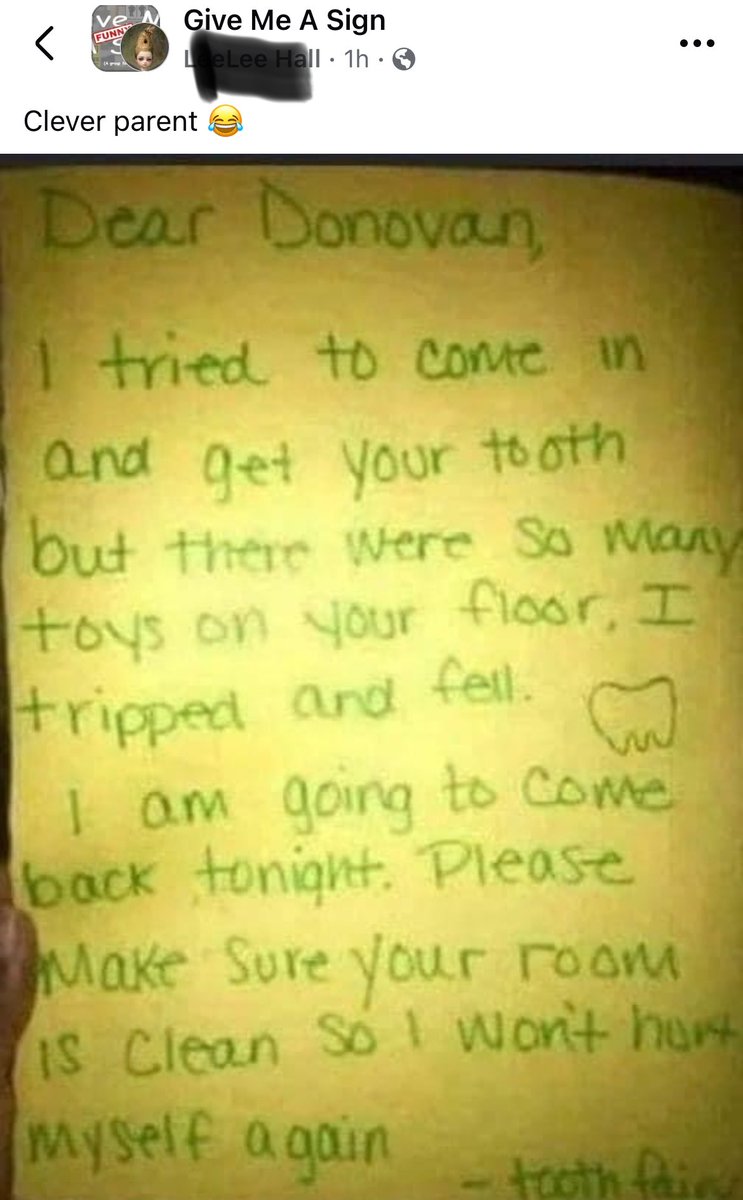 Give Me A Sign
LeeLee Hall · 1h ·
Clever parent 😂
Dear Donovan,
I tried to come in
and get your tooth
but there were so many
toys on your floor. I
tripped and fell.
I am going to come
back tonight. Please
Make Sure your room
is Clean so I won't hurt
myself again
- tooth